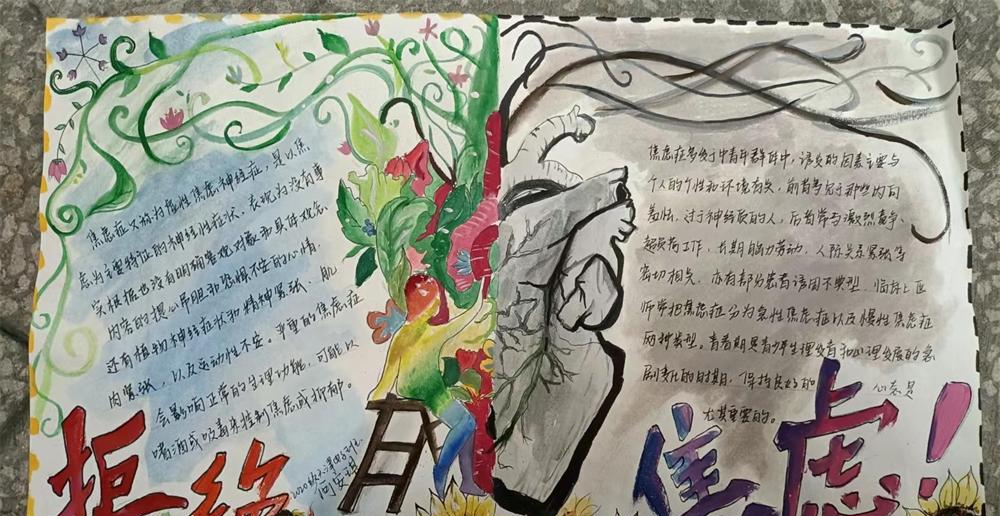 焦虑症又称为慢性焦虑神经症，是以焦
虑为主要特征的神经性症状，表现为没有事
实根据也没有明确客观对象和具体观念
内容的提心吊胆和恐惧不安的心情，
还有植物神经症状和精神紧张、肌
肉紧张，以及运动性不安。严重的焦虑症
会影响正常的生理功能，可能以
嗜酒或吸毒来抵制焦虑或抑郁。
焦虑症多发于中青年群体中，诱发的因素主要与
个人的个性和环境有关，前者多见于那些内向
羞怯、过于神经质的人，后者常与激烈竞争、
超负荷工作、长期脑力劳动、人际关系紧张等
密切相关，亦有部分患者诱因不典型。临床上医
师常把焦虑症分为急性焦虑症以及慢性焦虑症
两种类型。青春期是青少年生理发育和心理发展的急
剧变化的时期，保持良好的 心态是
尤其重要的。
拒绝
焦虑！